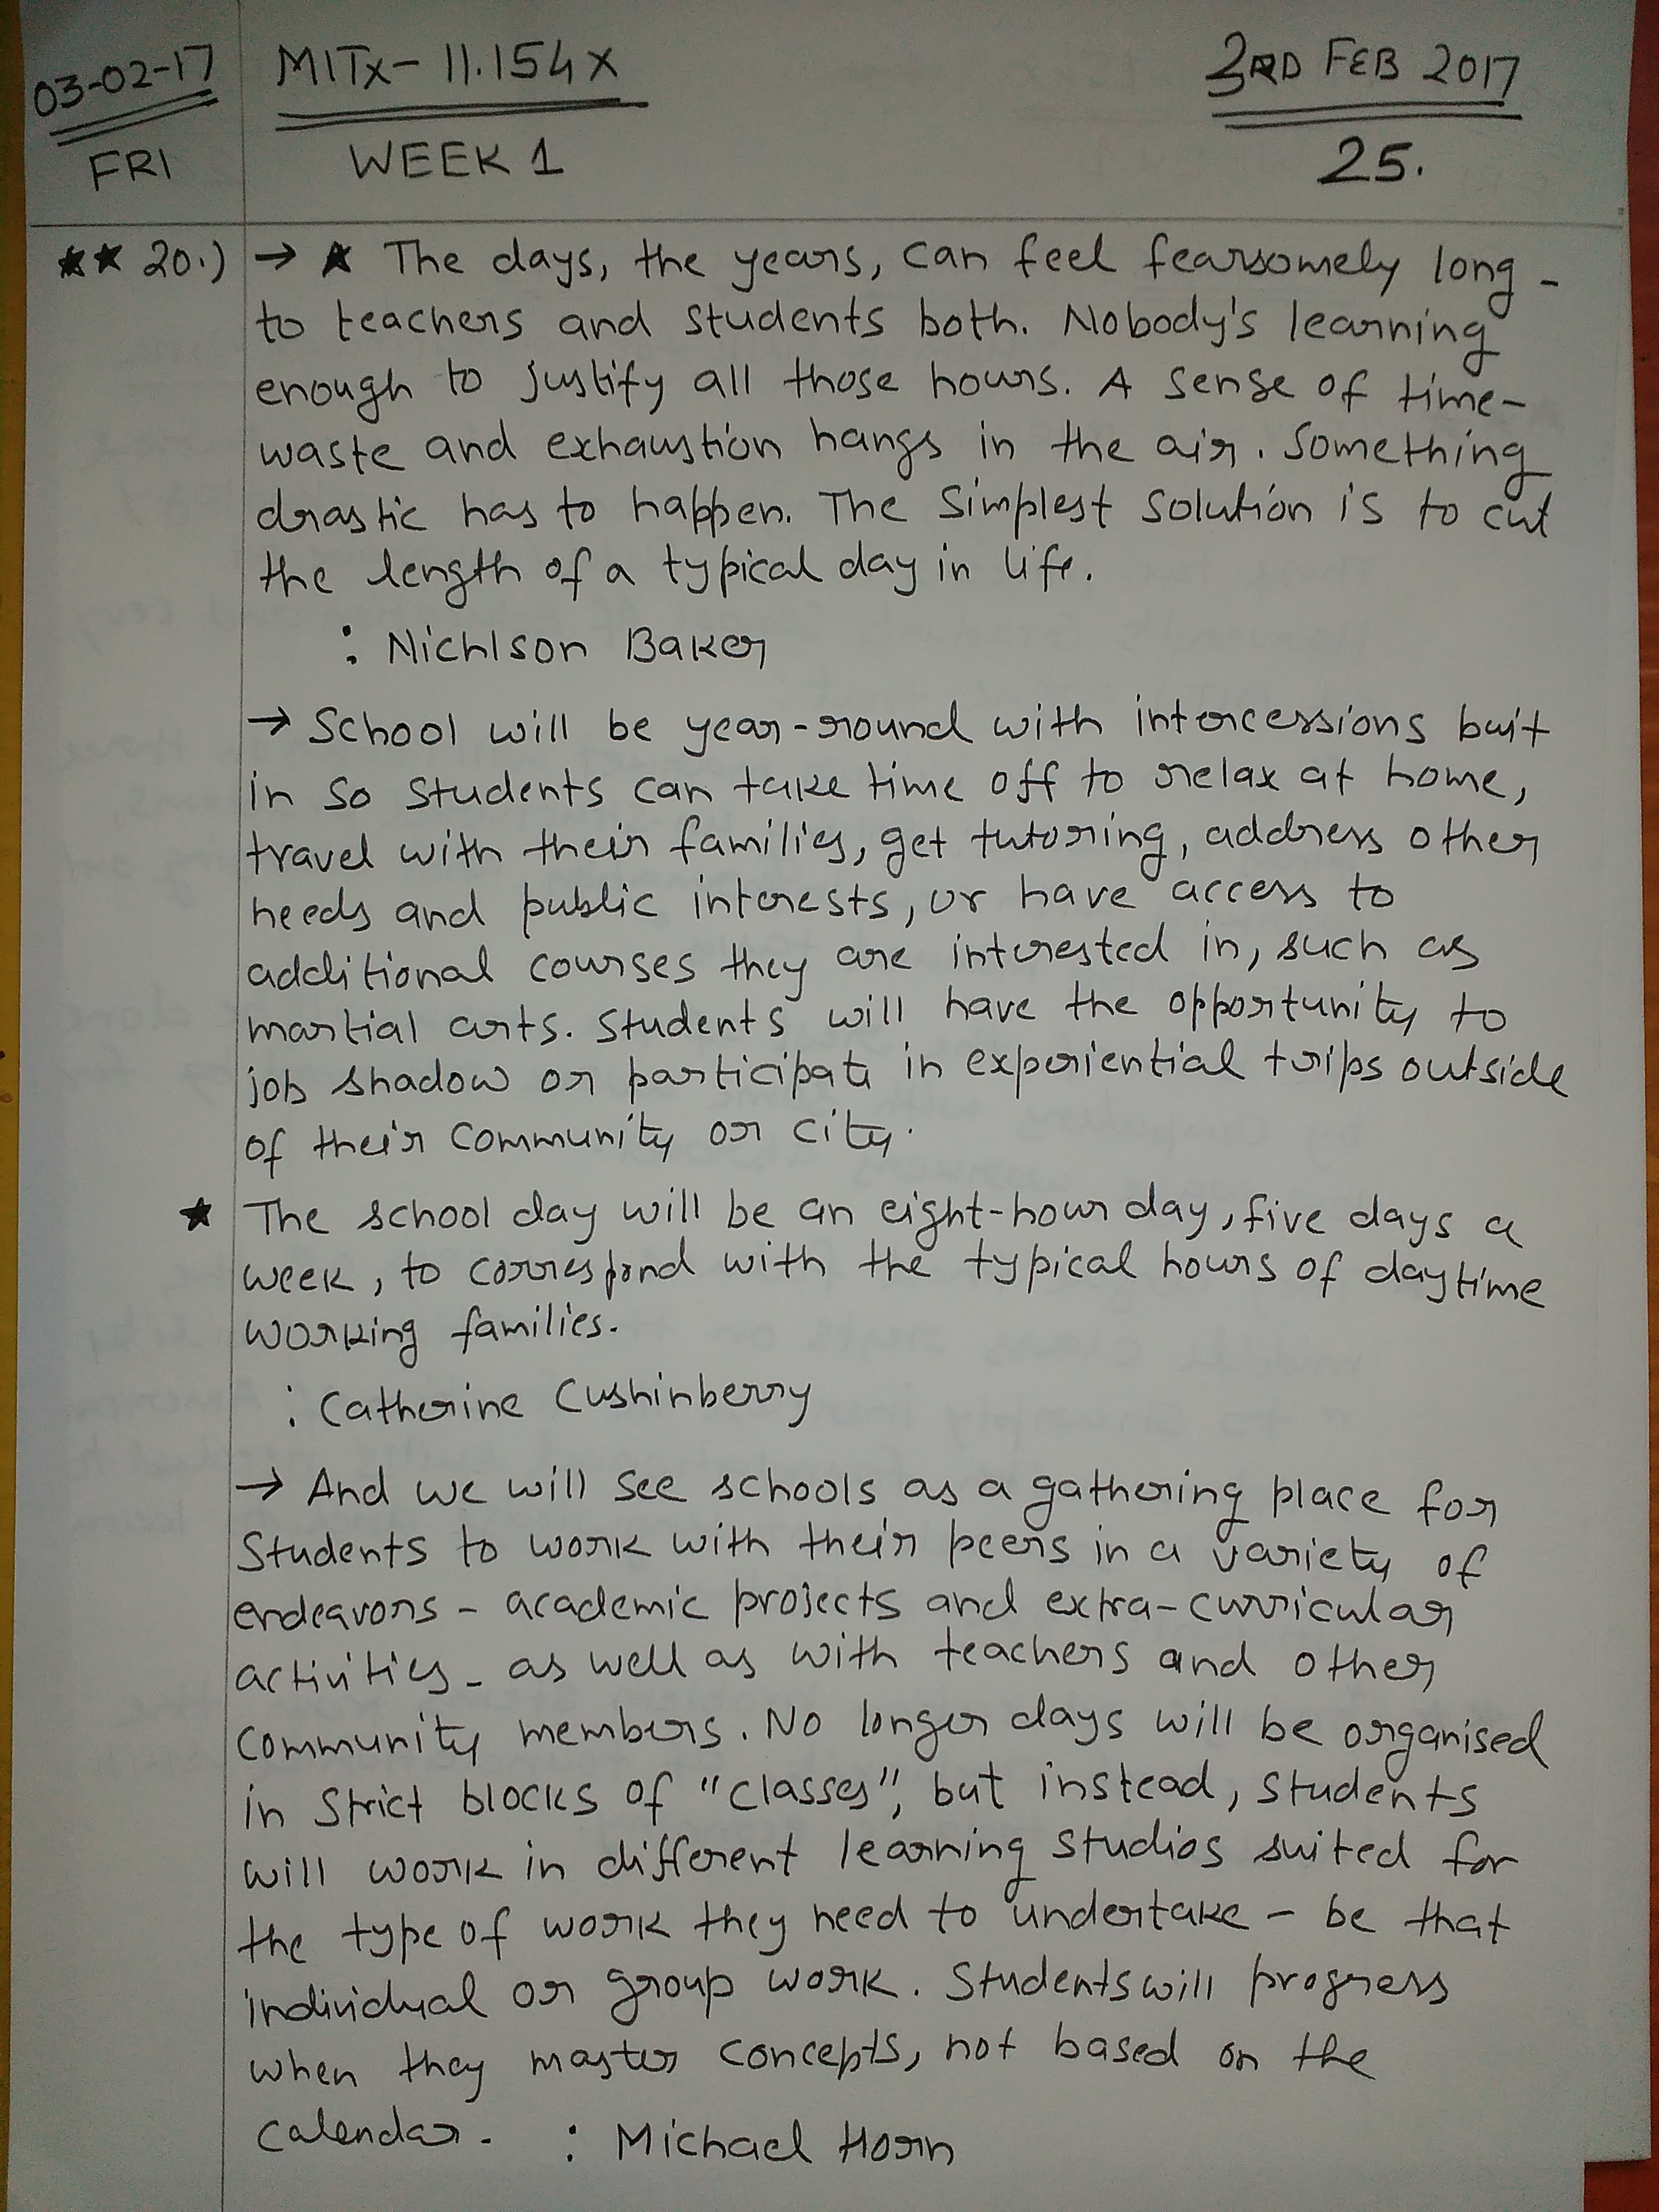 03-02-17
FRI
MITx- 11.154x
WEEK 1
3RD FEB 2017
25.
★★ 20.) → ★ The days, the years, can feel fearsomely long -
to teachers and students both. Nobody's learning
enough to justify all those hours. A sense of time-
waste and exhaustion hangs in the air. Something
drastic has to happen. The simplest solution is to cut
the length of a typical day in life.
: Nichlson Baker
→ School will be year-round with intercessions buit
in so students can take time off to relax at home,
travel with their families, get tutoring, address other
needs and public interests, or have access to
additional courses they are interested in, such as
martial arts. Students will have the opportunity to
job shadow or participate in experiential trips outside
of their community or city.
★ The school day will be an eight-hour day, five days a
week, to correspond with the typical hours of daytime
working families.
: Catherine Cushinberry
→ And we will see schools as a gathering place for
students to work with their peers in a variety of
endeavors - academic projects and extra-curricular
activities - as well as with teachers and other
community members. No longer days will be organised
in strict blocks of "classes", but instead, students
will work in different learning studios suited for
the type of work they need to undertake - be that
individual or group work. Students will progress
when they master concepts, not based on the
calendar. : Michael Horn